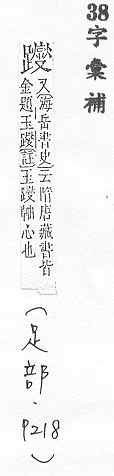 38字彙補
躞
又海岳書史云隋唐藏書皆
金題玉躞註玉躞軸心也
(足部．9218)